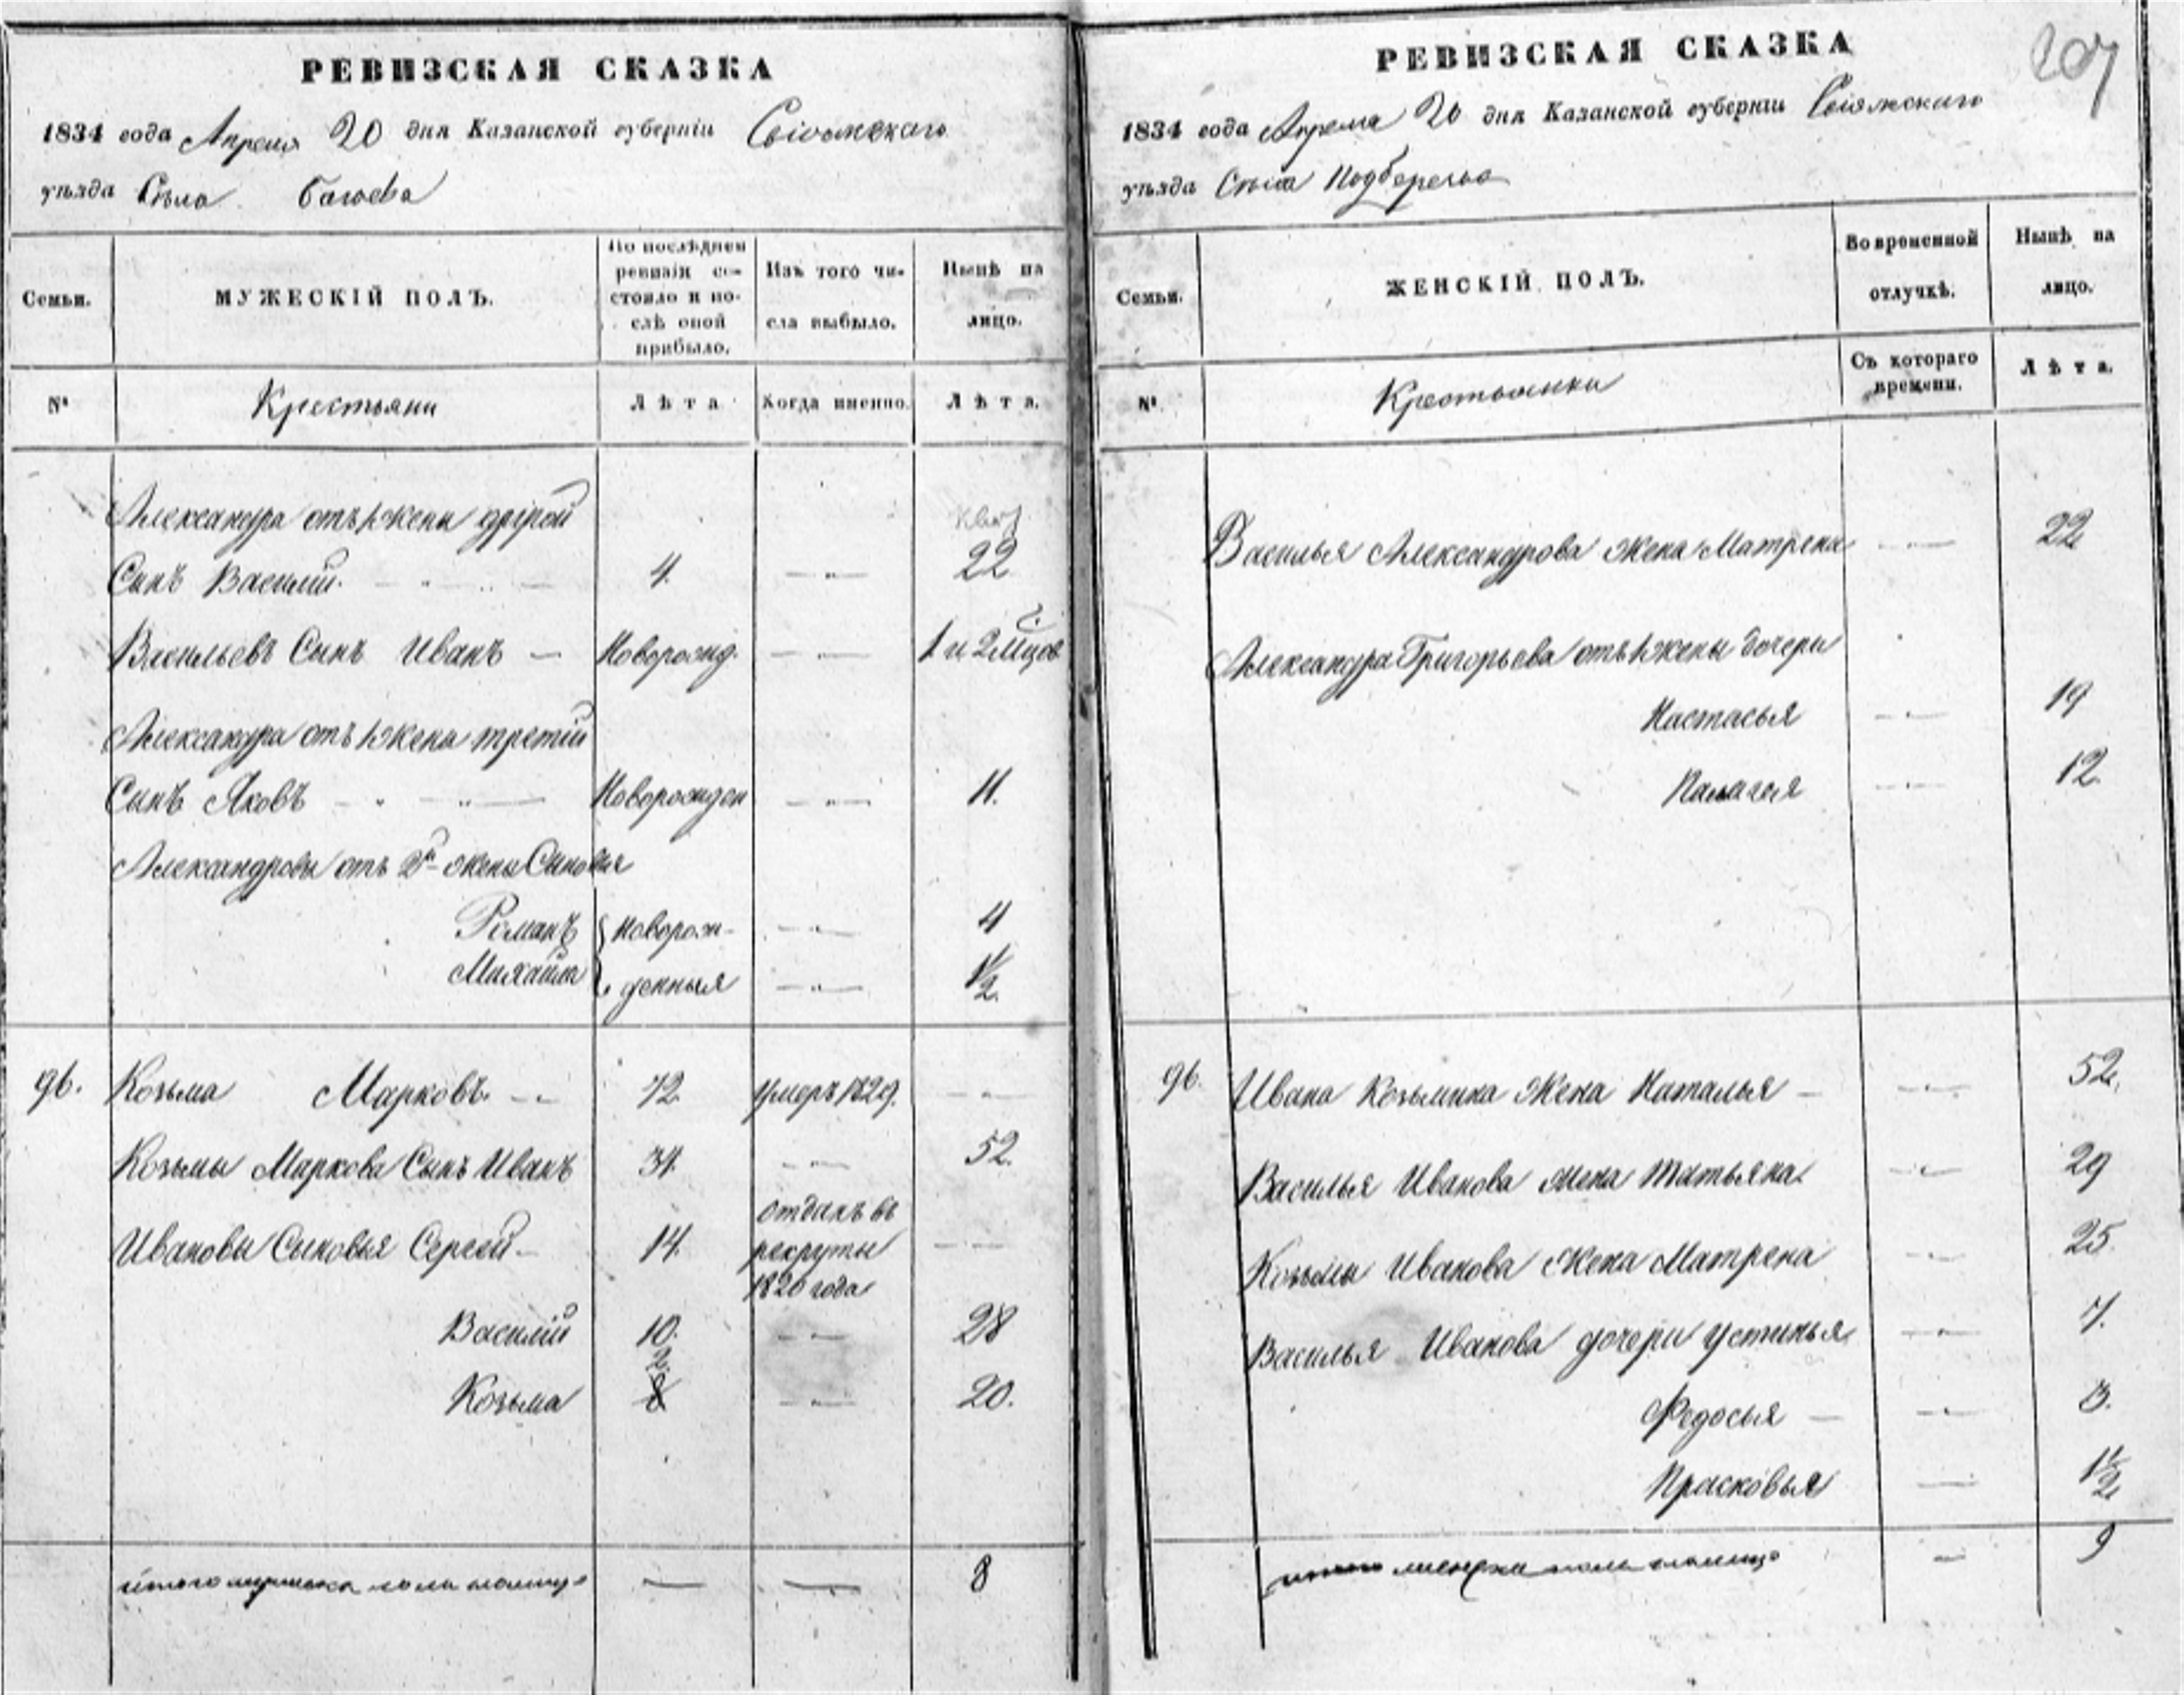 РЕВИЗСКАЯ СКАЗКА
1834 года Апреля 20 дня Казанской губерніи Свіяжскаго
уѣзда Села
Семьи.
МУЖЕСКІЙ ПОЛЪ.
По послѣдней ревизіи состояло и послѣ оной прибыло.
Изъ того числа выбыло.
Нынѣ на лицо.
№
Крестьяни
Лѣта
Когда именно.
Лѣта.
Александра отъ 1 жены другой
Сынъ Василий. 4. 22
Васильевъ Сынъ Иванъ — Новорожд. 1 и 2 мцов
Александра отъ 1 жены третий
Сынъ Яковъ Новорожден 11.
Александровы отъ 2й жены Сыновья
Романъ новорож- 4
Михайла денныя 1½
96. Козьма Марковъ. 72. умеръ 1829.
Козьмы Маркова Сынъ Иванъ 34. 52.
Ивановы Сыновья Сергей 14. отданъ въ
рекруты
1820 года
Василій 10. 28
2.
Козьма 8 20.
итого мужеска пола налицо — — 8
РЕВИЗСКАЯ СКАЗКА
207
1834 года Апреля 20 дня Казанской губерніи Свіяжскаго
уѣзда Села Подберезья
Семьи.
ЖЕНСКІЙ ПОЛЪ.
Во временной отлучкѣ.
Нынѣ на лицо.
№
Крестьянки
Съ котораго времени.
Лѣта.
Василья Александрова жена Матрена 22
Александра Григорьева отъ 1 жены дочери
Настасья 19
Палагея 12.
96. Ивана Козьмина Жена Наталья — 52.
Василья Иванова жена Татьяна. 29
Козьмы Иванова Жена Матрена 25
Василья Иванова дочери Устинья 7.
Федосья — 3.
Прасковья 1½
итого женска пола налицо — 9